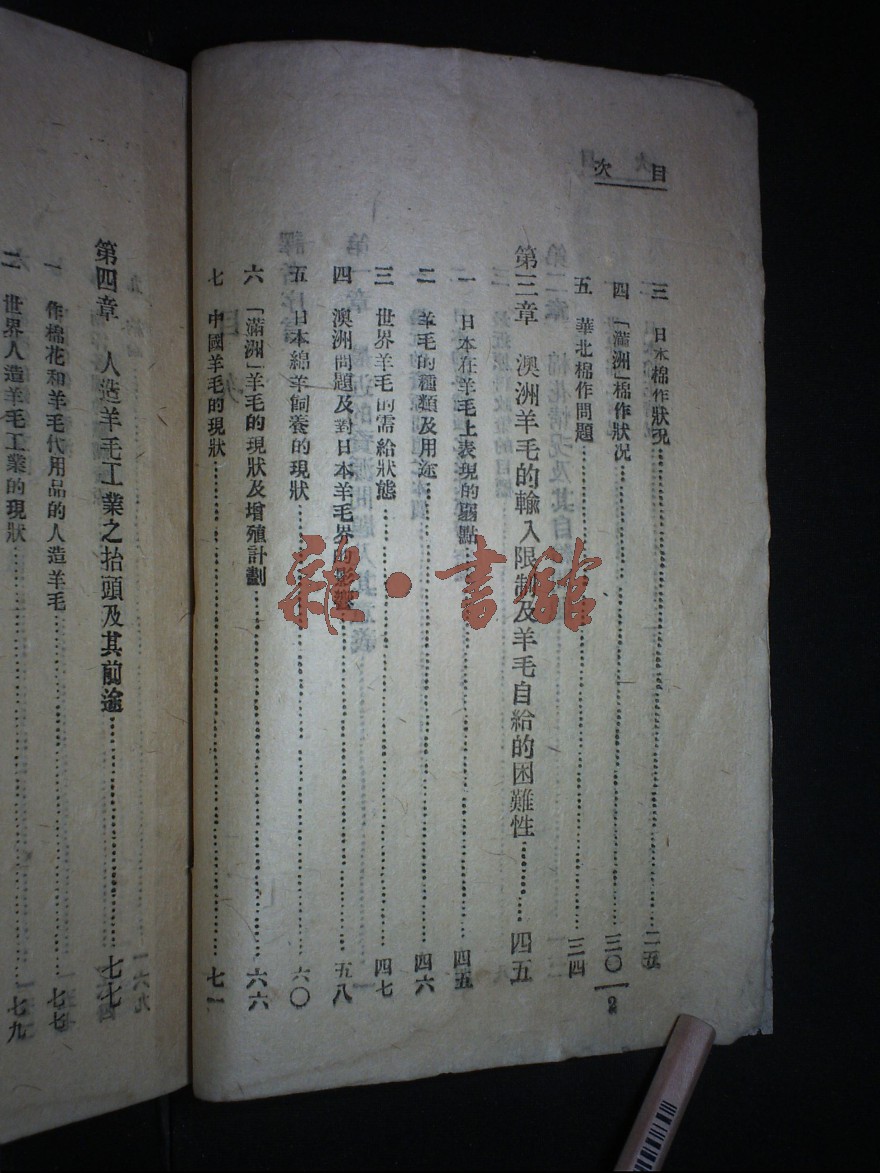 目次
三 日本棉作狀況……二五
四 「滿洲」棉作狀況……三〇
五 華北棉作問題……三四
第三章 澳洲羊毛的輸入限制及羊毛自給的困難性……四五
一 日本在羊毛上表現的弱點……四五
二 羊毛的種類及用途……四六
三 世界羊毛的需給狀態……四七
四 澳洲問題及對日本羊毛界的影響……五八
五 日本綿羊飼養的現狀……六〇
六 「滿洲」羊毛的現狀及增殖計劃……六六
七 中國羊毛的現狀……七一
2
第四章 人造羊毛工業之抬頭及其前途……七七
一 作棉花和羊毛代用品的人造羊毛……七七
二 世界人造羊毛工業的現狀……七九
雜·書館